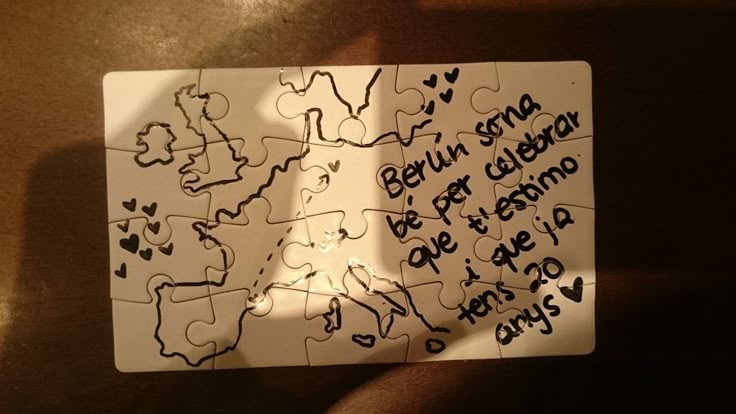 Berlín sona
bé per celebrar
que t'estimo
i que ja
tens 20
anys